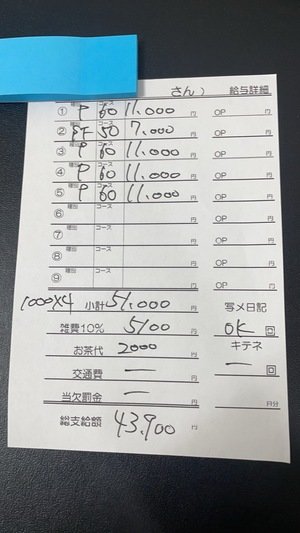 さん） 給与詳細
① 種別 P コース 60 11,000 円 OP 円
② 種別 EF コース 50 7,000 円 OP 円
③ 種別 P コース 60 11,000 円 OP 円
④ 種別 P コース 60 11,000 円 OP 円
⑤ 種別 P コース 60 11,000 円 OP 円
⑥ 種別 コース 円 OP 円
⑦ 種別 コース 円 OP 円
⑧ 種別 コース 円 OP 円
⑨ 種別 コース 円 OP 円
1000×4 小計 51,000 円 写メ日記
雑費10% 5100 円 OK 回
お茶代 2000 円 キテネ
交通費 ー 円 ー 回
当欠罰金 ー 円 日分
総支給額 43,900 円